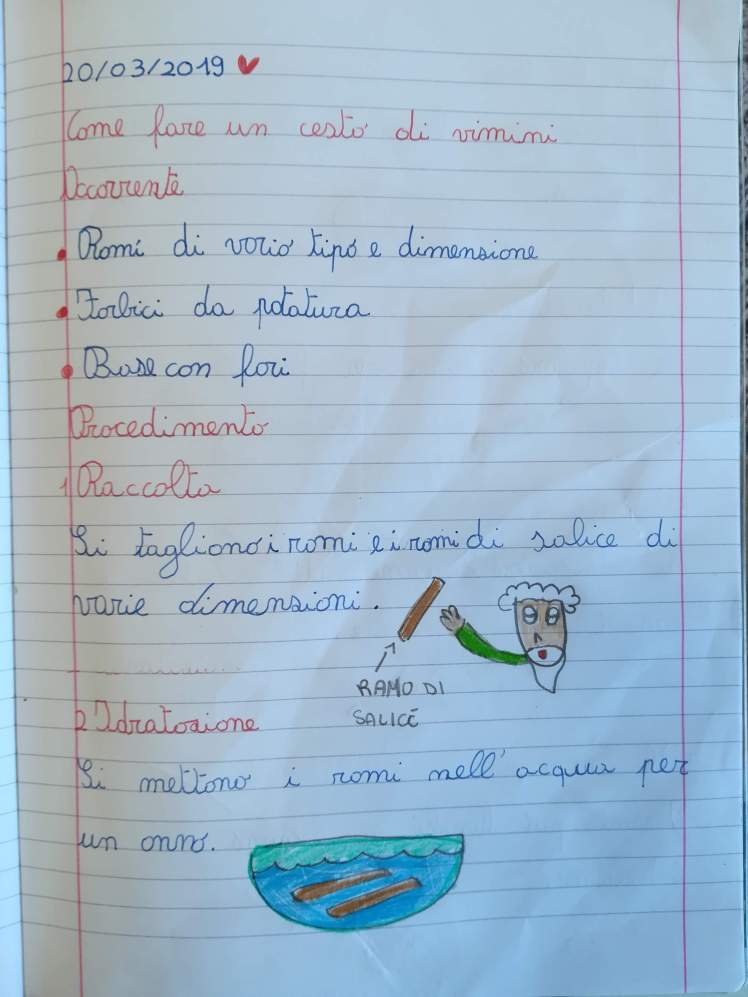 20/03/2019
Come fare un cesto di vimini
Occorrente
Rami di vario tipo e dimensione
Forbici da potatura
Base con fori
Procedimento
1 Raccolta
Si tagliano i rami e i rami di salice di
varie dimensioni.
RAMO DI
SALICE
2 Idratazione
Si mettono i rami nell'acqua per
un anno.